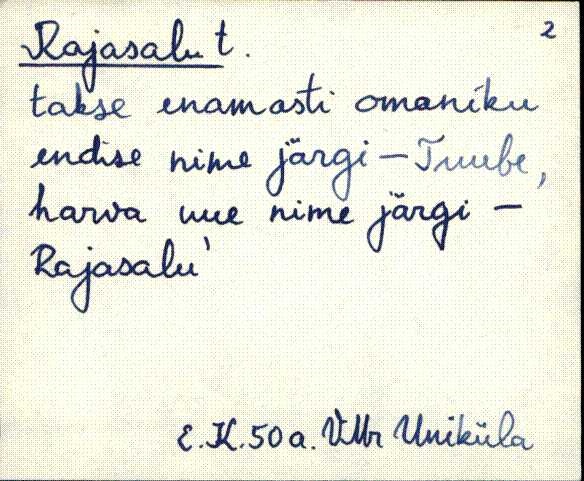 Rajasalu t. 2
takse enamasti omaniku
endise nime järgi – Tuube,
harva uue nime järgi –
Rajasalu'
E.K. 50 a. VMr Uniküla